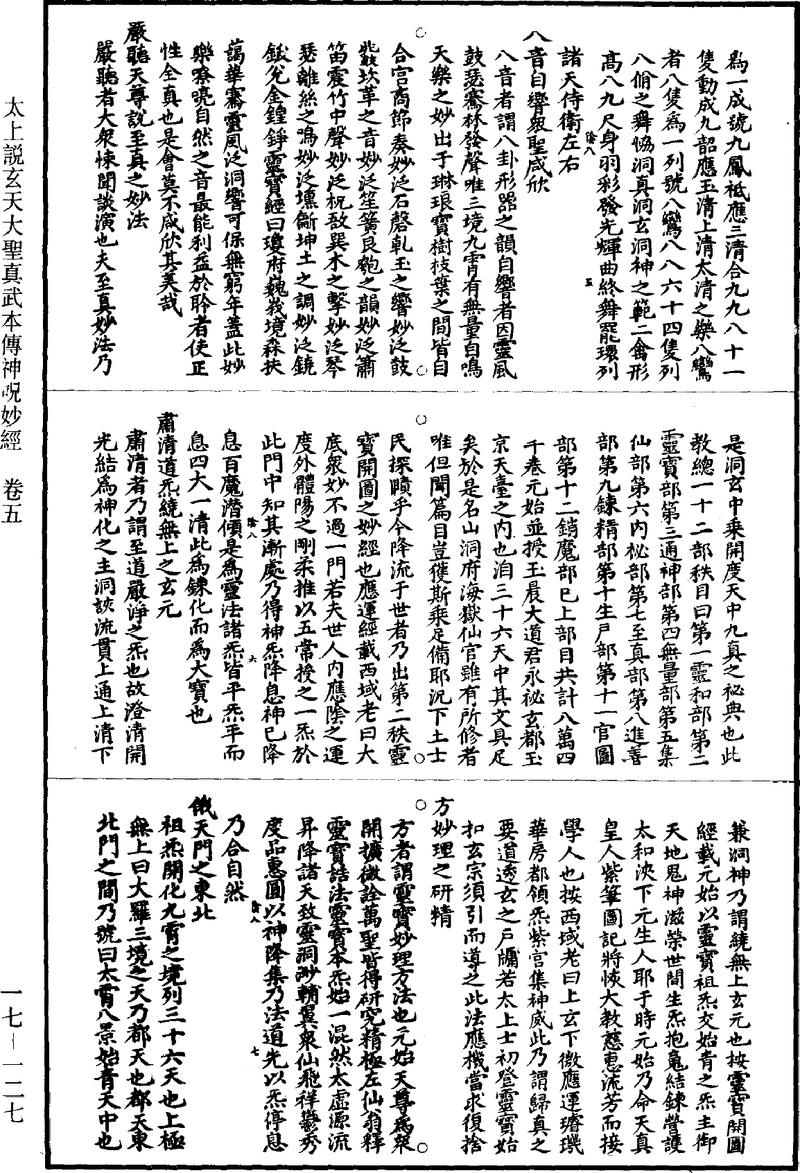 太上説玄天大聖真武本傳神呪妙經　卷五
一七－一二七
爲一成號九鳳祗應三清合九九八十一
隻動成九韶應玉清上清太清之樂八鸞
者八隻爲一列號八鸞八八六十四隻列
八佾之舞恊洞真洞玄洞神之範二禽形
高八九尺身羽彩發光輝曲終舞罷環列
諸天侍衛左右
八音自響衆聖咸欣
八音者謂八卦形器之韻自響者因靈風
鼓瑟騫林發聲唯三境九霄有無量自鳴
天樂之妙出于琳琅寶樹枝葉之間皆自
合宫商節奏妙泛石磬乾玉之響妙泛鼓
鼗坎革之音妙泛笙簧艮匏之韻妙泛簫
笛震竹中聲妙泛柷敔巽木之擊妙泛琴
瑟離絲之鳴妙泛壎箎坤土之調妙泛鐃
鈸兊金鍠錚靈寶經曰瓊府巍峩境森扶
藹華騫靈風泛洞響可保無窮年蓋此妙
樂嘹喨自然之音最能利益於聆者使正
性全真也是會莫不咸欣其美哉
嚴聽天尊説至真之妙法
嚴聽者大衆悚聞談演也夫至真妙法乃
是洞玄中乘開度天中九真之祕典也此
教總一十二部秩目曰第一靈和部第二
靈寶部第三通神部第四無量部第五集
仙部第六内祕部第七至真部第八進善
部第九鍊精部第十生尸部第十一官圖
部第十二銷魔部已上部目共計八萬四
千卷元始並授玉晨大道君永祕玄都玉
京天臺之内也洎三十六天中其文具足
矣於是名山洞府海嶽仙官雖有所修者
唯但聞篇目豈獲斯乘足備耶況下土士
民探賾乎今降流于世者乃出第二秩靈
寶開圖之妙經也應運經載西域老曰大
底衆妙不過一門若夫世人内應陰之運
度外體陽之剛柔推以五常授之一炁於
此門中知其漸處乃得神炁降息神已降
息百魔潛傾是爲靈法諸炁皆平炁平而
息四大一清此爲鍊化而爲大寶也
肅清道炁繞無上之玄元
肅清者乃謂至道嚴淨之炁也故澄清開
光結爲神化之主洞談流貫上通上清下
兼洞神乃謂繞無上玄元也按靈寶開圖
經載元始以靈寶祖炁交始青之炁主御
天地鬼神滋榮世間生炁抱䰟結鍊營護
太和浹下元生人耶于時元始乃命天真
皇人紫筆圖記將恢大教慈惠流芳而接
學人也按西域老曰上玄下微應運璿璣
華房都領炁紫宫集神威此乃謂歸真之
要道透玄之戶牖若太上士初登靈寶始
扣玄宗須引而導之此法應機當求復捨
方妙理之研精
方者謂靈寶妙理方法也元始天尊爲衆
開擴微詮萬聖皆得研究精極左仙翁釋
靈寶誥法靈寶本炁始一混然太虚源流
昇降諸天致靈洞渺輔翼衆仙飛祥鬱秀
度品惠圖以神降集乃法道先以炁停息
乃合自然
儀天門之東北
祖炁開化九霄之境列三十六天也上極
無上曰大羅三境之天乃都天也都天東
北門之間乃號曰太霄八景始青天中也